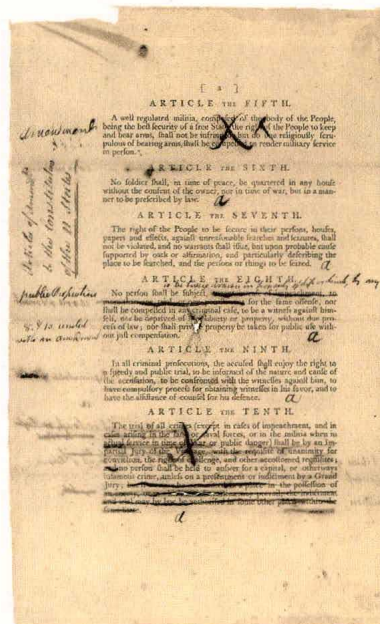 [ 2 ]
ARTICLE THE FIFTH.
A well regulated militia, composed of the body of the People,
being the best security of a free State, the right of the People to keep
and bear arms, shall not be infringed, but no one religiously scru-
pulous of bearing arms, shall be compelled to render military service
in person.
ARTICLE THE SIXTH.
No soldier shall, in time of peace, be quartered in any house
without the consent of the owner, nor in time of war, but in a man-
ner to be prescribed by law. a
ARTICLE THE SEVENTH.
The right of the People to be secure in their persons, houses,
papers and effects, against unreasonable searches and seizures, shall
not be violated, and no warrants shall issue, but upon probable cause
supported by oath or affirmation, and particularly describing the
place to be searched, and the persons or things to be seized. a
ARTICLE THE EIGHTH.
to be twice in jeopardy of by any
public Prosecution
No person shall be subject,
for the same offense, nor
shall be compelled in any criminal case, to be a witness against him-
self, nor be deprived of life, liberty or property, without due pro-
cess of law; nor shall private property be taken for public use with-
out just compensation. a
8. & 10. united
ARTICLE THE NINTH.
In all criminal prosecutions, the accused shall enjoy the right to
a speedy and public trial, to be informed of the nature and cause of
the accusation, to be confronted with the witnesses against him, to
have compulsory process for obtaining witnesses in his favor, and to
have the assistance of counsel for his defence. a
ARTICLE THE TENTH.
The trial of all crimes (except in cases of impeachment, and in
cases arising in the land or naval forces, or in the militia when in
actual service in time of war or public danger) shall be by an Im-
partial Jury of the Vicinage, with the requisite of unanimity for
conviction, the right of challenge, and other accustomed requisites;
no person shall be held to answer for a capital, or otherways
infamous crime, unless on a presentment or indictment by a Grand
Jury;
in the possession of
a
Amendment
to the Constitution
of the States